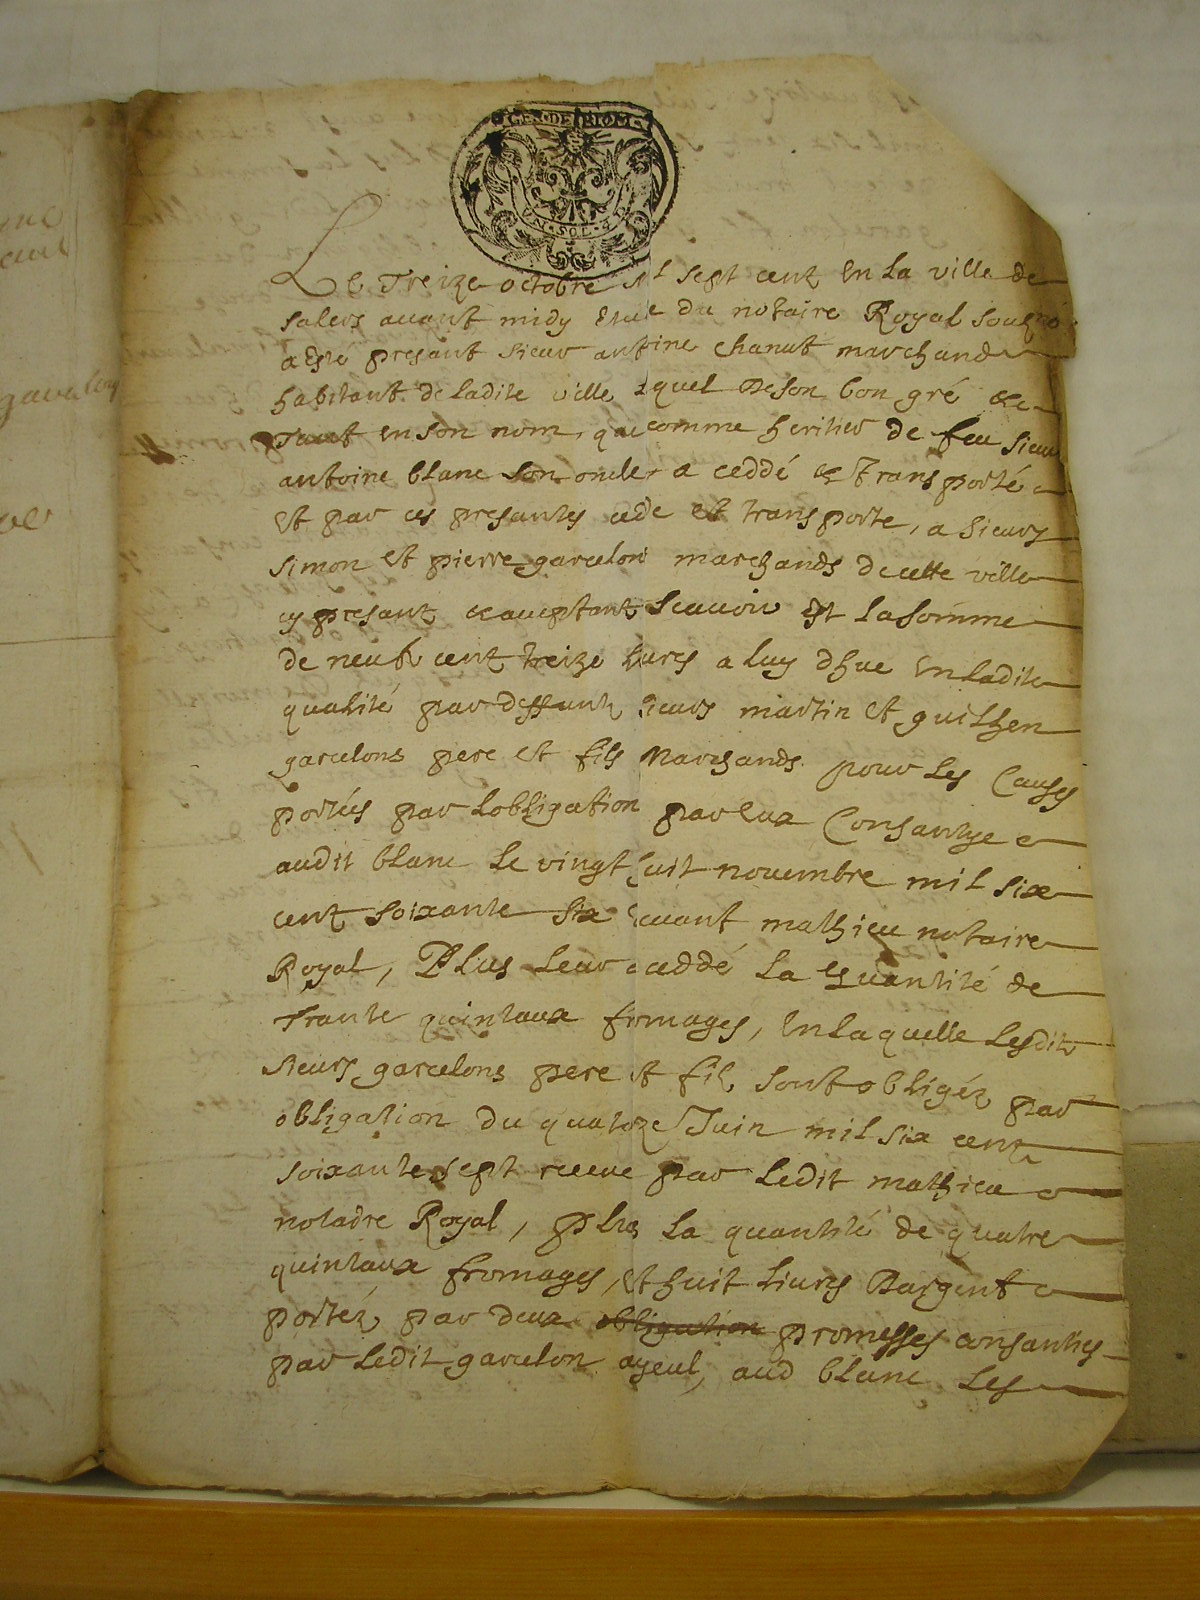 GEN·DE RIOM
UN·SOL·4D
Le Treize octobre mil sept cent En La ville de
salers avant midy devant le du notaire Royal souzné
a Esté presant sieur antoine chanut marchand
habitant de ladite ville lequel De son bon gré &
Tant en son nom, que comme heritier de feu sieur
antoine blanc son oncle a ceddé & Transporté
Et par ces presantes cede et transporte, a sieurs
simon et pierre garcelon marchands de cette ville
cy presant & aceptant Scavoir Est La somme
de neuf cent treize livres a luy dhue En ladite
qualité par deffuntz sieurs martin et guilhen
garcelons pere et fils Marchands pour les Causes
portées par Lobligation par eux Consantye
audit blanc Le vingt huit novembre mil six
cent soixante six devant mathieu notaire
Royal, Plus Leur a ceddé La quantité de
Trante quintaux fromages, En laquelle Lesdit
sieurs garcelons pere et fils sont obligéz par
obligation du quatorze Juin mil six cent
soixante sept receue par Ledit mathieu
notaire Royal, plus La quantité de quatre
quintaux fromages, et huit Livres Dargent
portéz par deux obligation promesses consanties
par Ledit garcelon ayeul, aud blanc Les